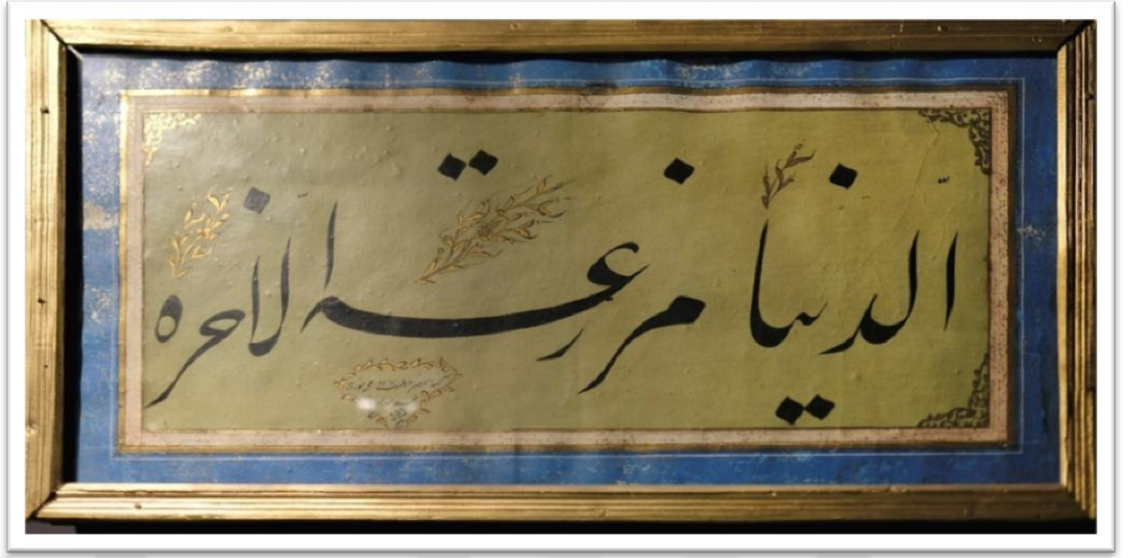 الدنیا مزرعة الاخره